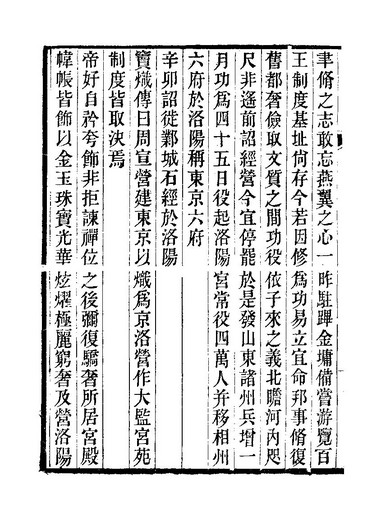 聿脩之志敢忘燕翼之心一昨駐蹕金墉備嘗游覽百
王制度基址尚存今若因修為功易立宜命邦事脩復
舊都奢儉取文質之間功役依子來之義北瞻河內咫
尺非遙前詔經營今宜停罷於是發山東諸州兵增一
月功為四十五日役起洛陽宮常役四萬人并移相州
六府於洛陽稱東京六府
辛卯詔徙鄴城石經於洛陽
竇熾傳曰周宣營建東京以熾為京洛營作大監宮苑
制度皆取決焉
帝好自矜夸飾非拒諫禪位之後彌復驕奢所居宮殿
幃帳皆飾以金玉珠寶光華炫燿極麗窮奢及營洛陽